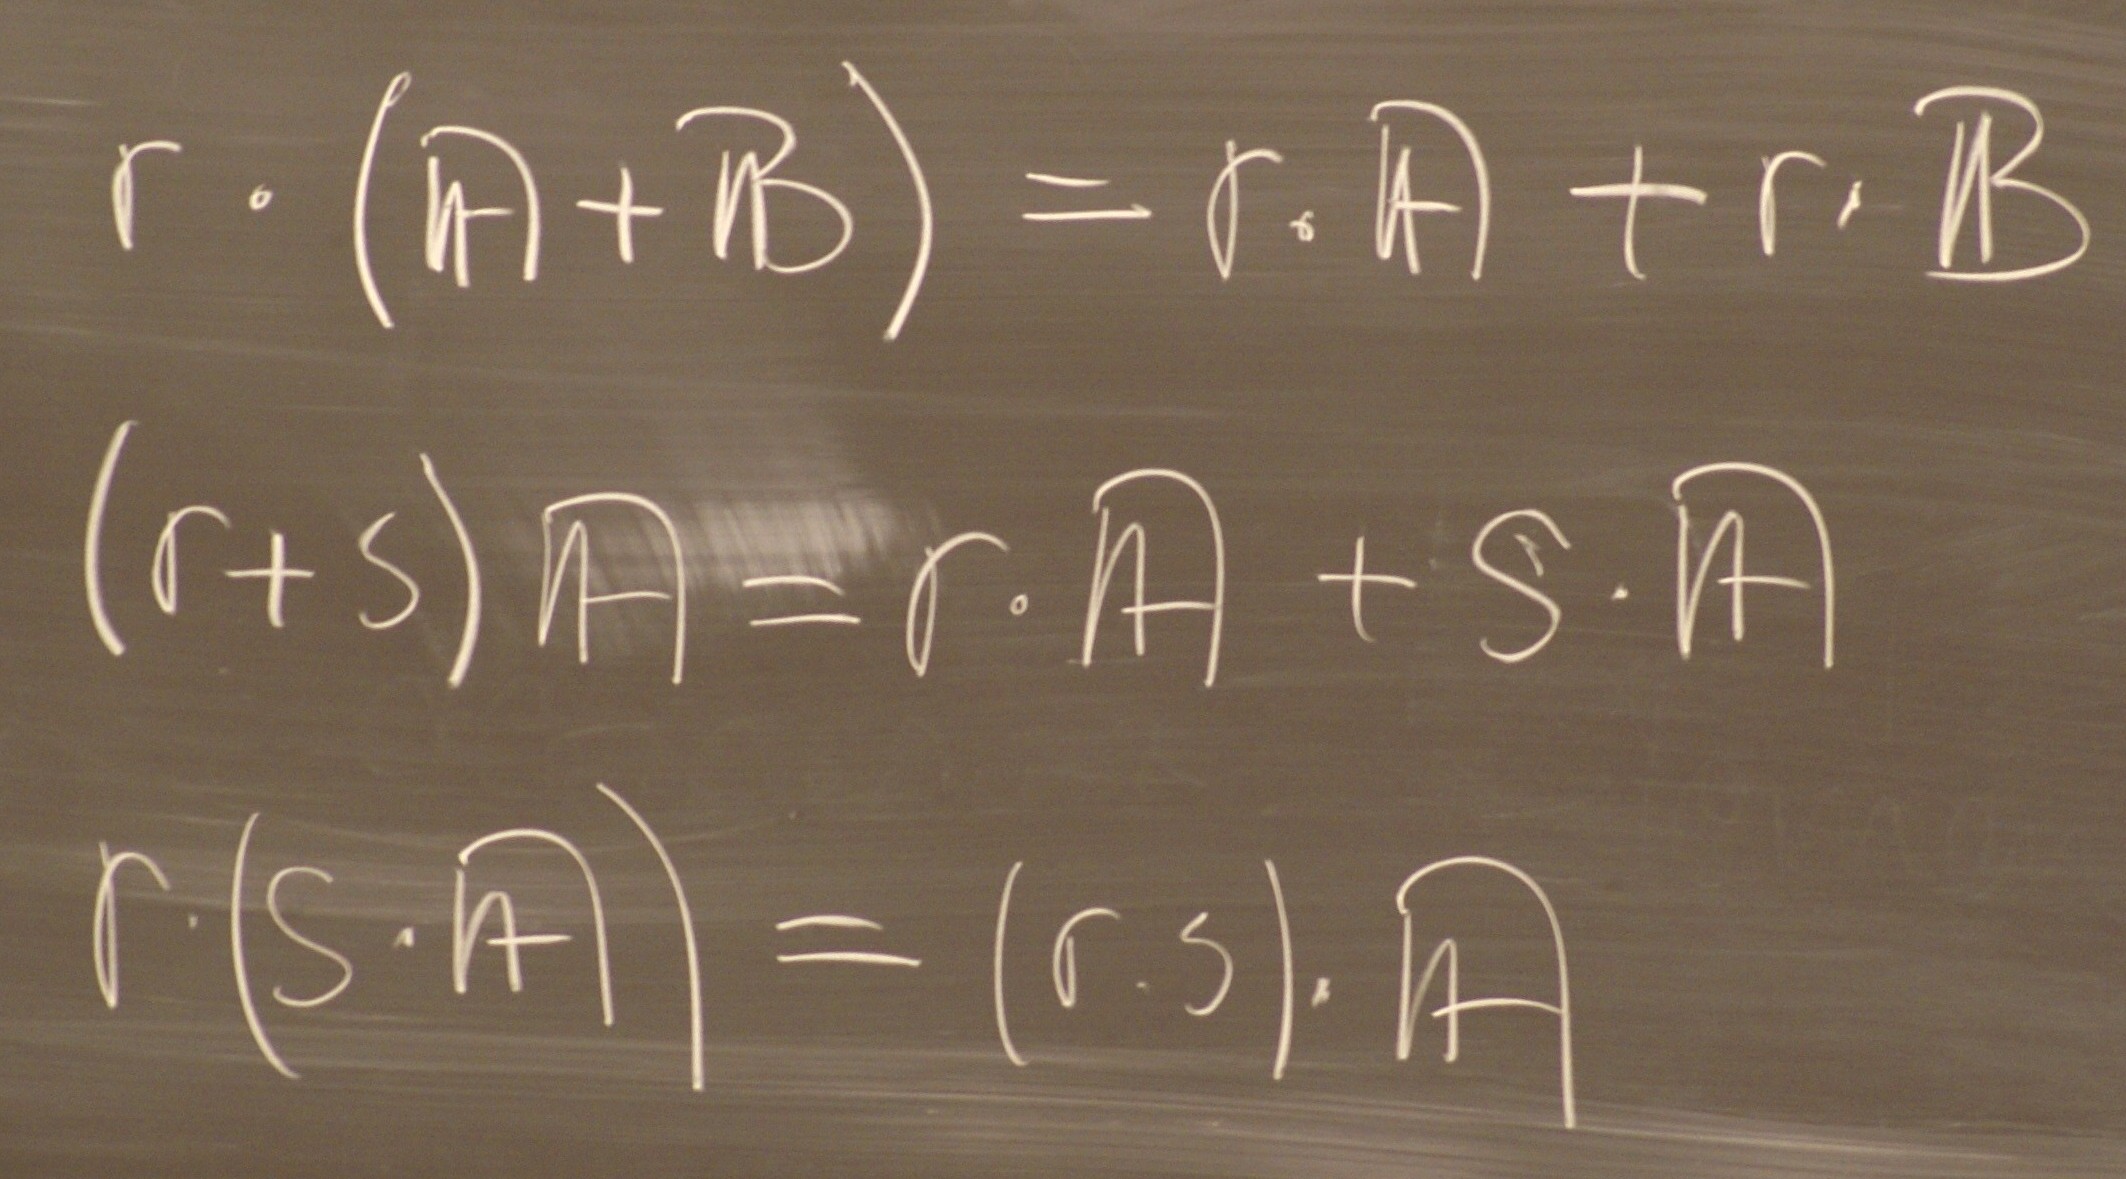 r · (𝔸 + 𝔹) = r · 𝔸 + r · 𝔹
(r + s) 𝔸 = r · 𝔸 + s · 𝔸
r · (s · 𝔸) = (r · s) · 𝔸